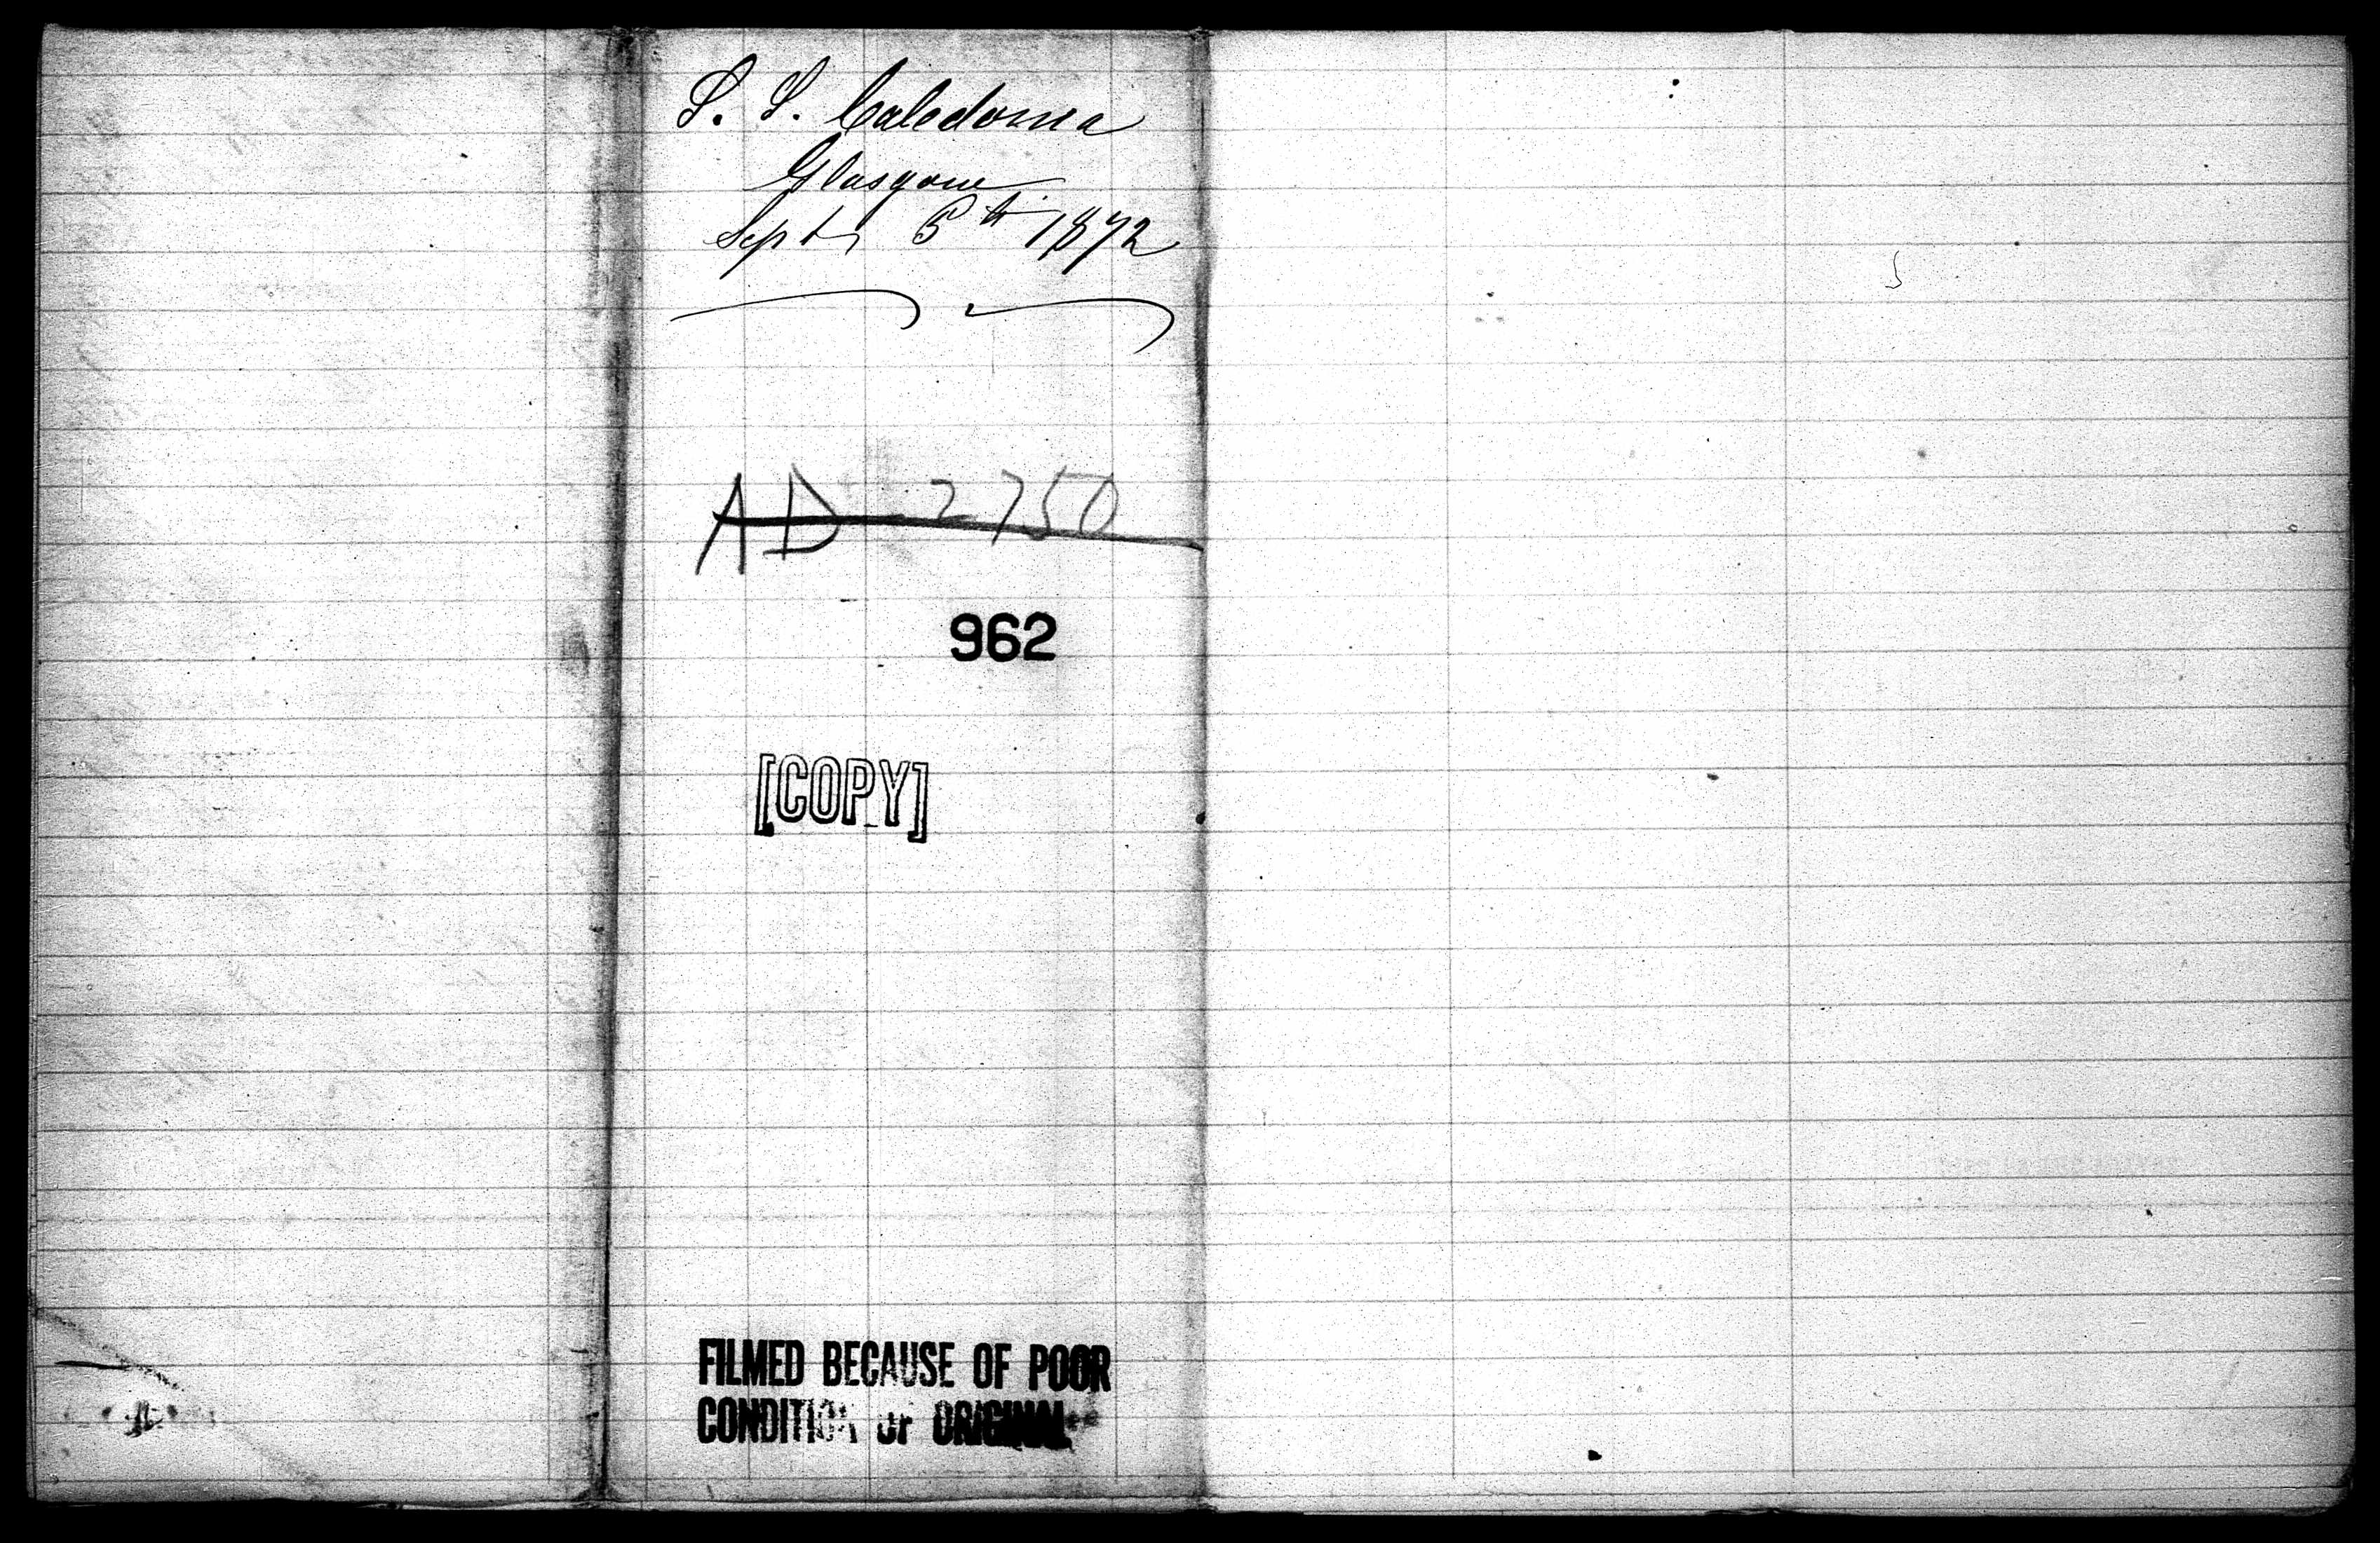 S. S. Caledonia
Glasgow
Sept, 6th 1872
AD 2750
962
[COPY]
FILMED BECAUSE OF POOR
CONDITION OF ORIGINAL